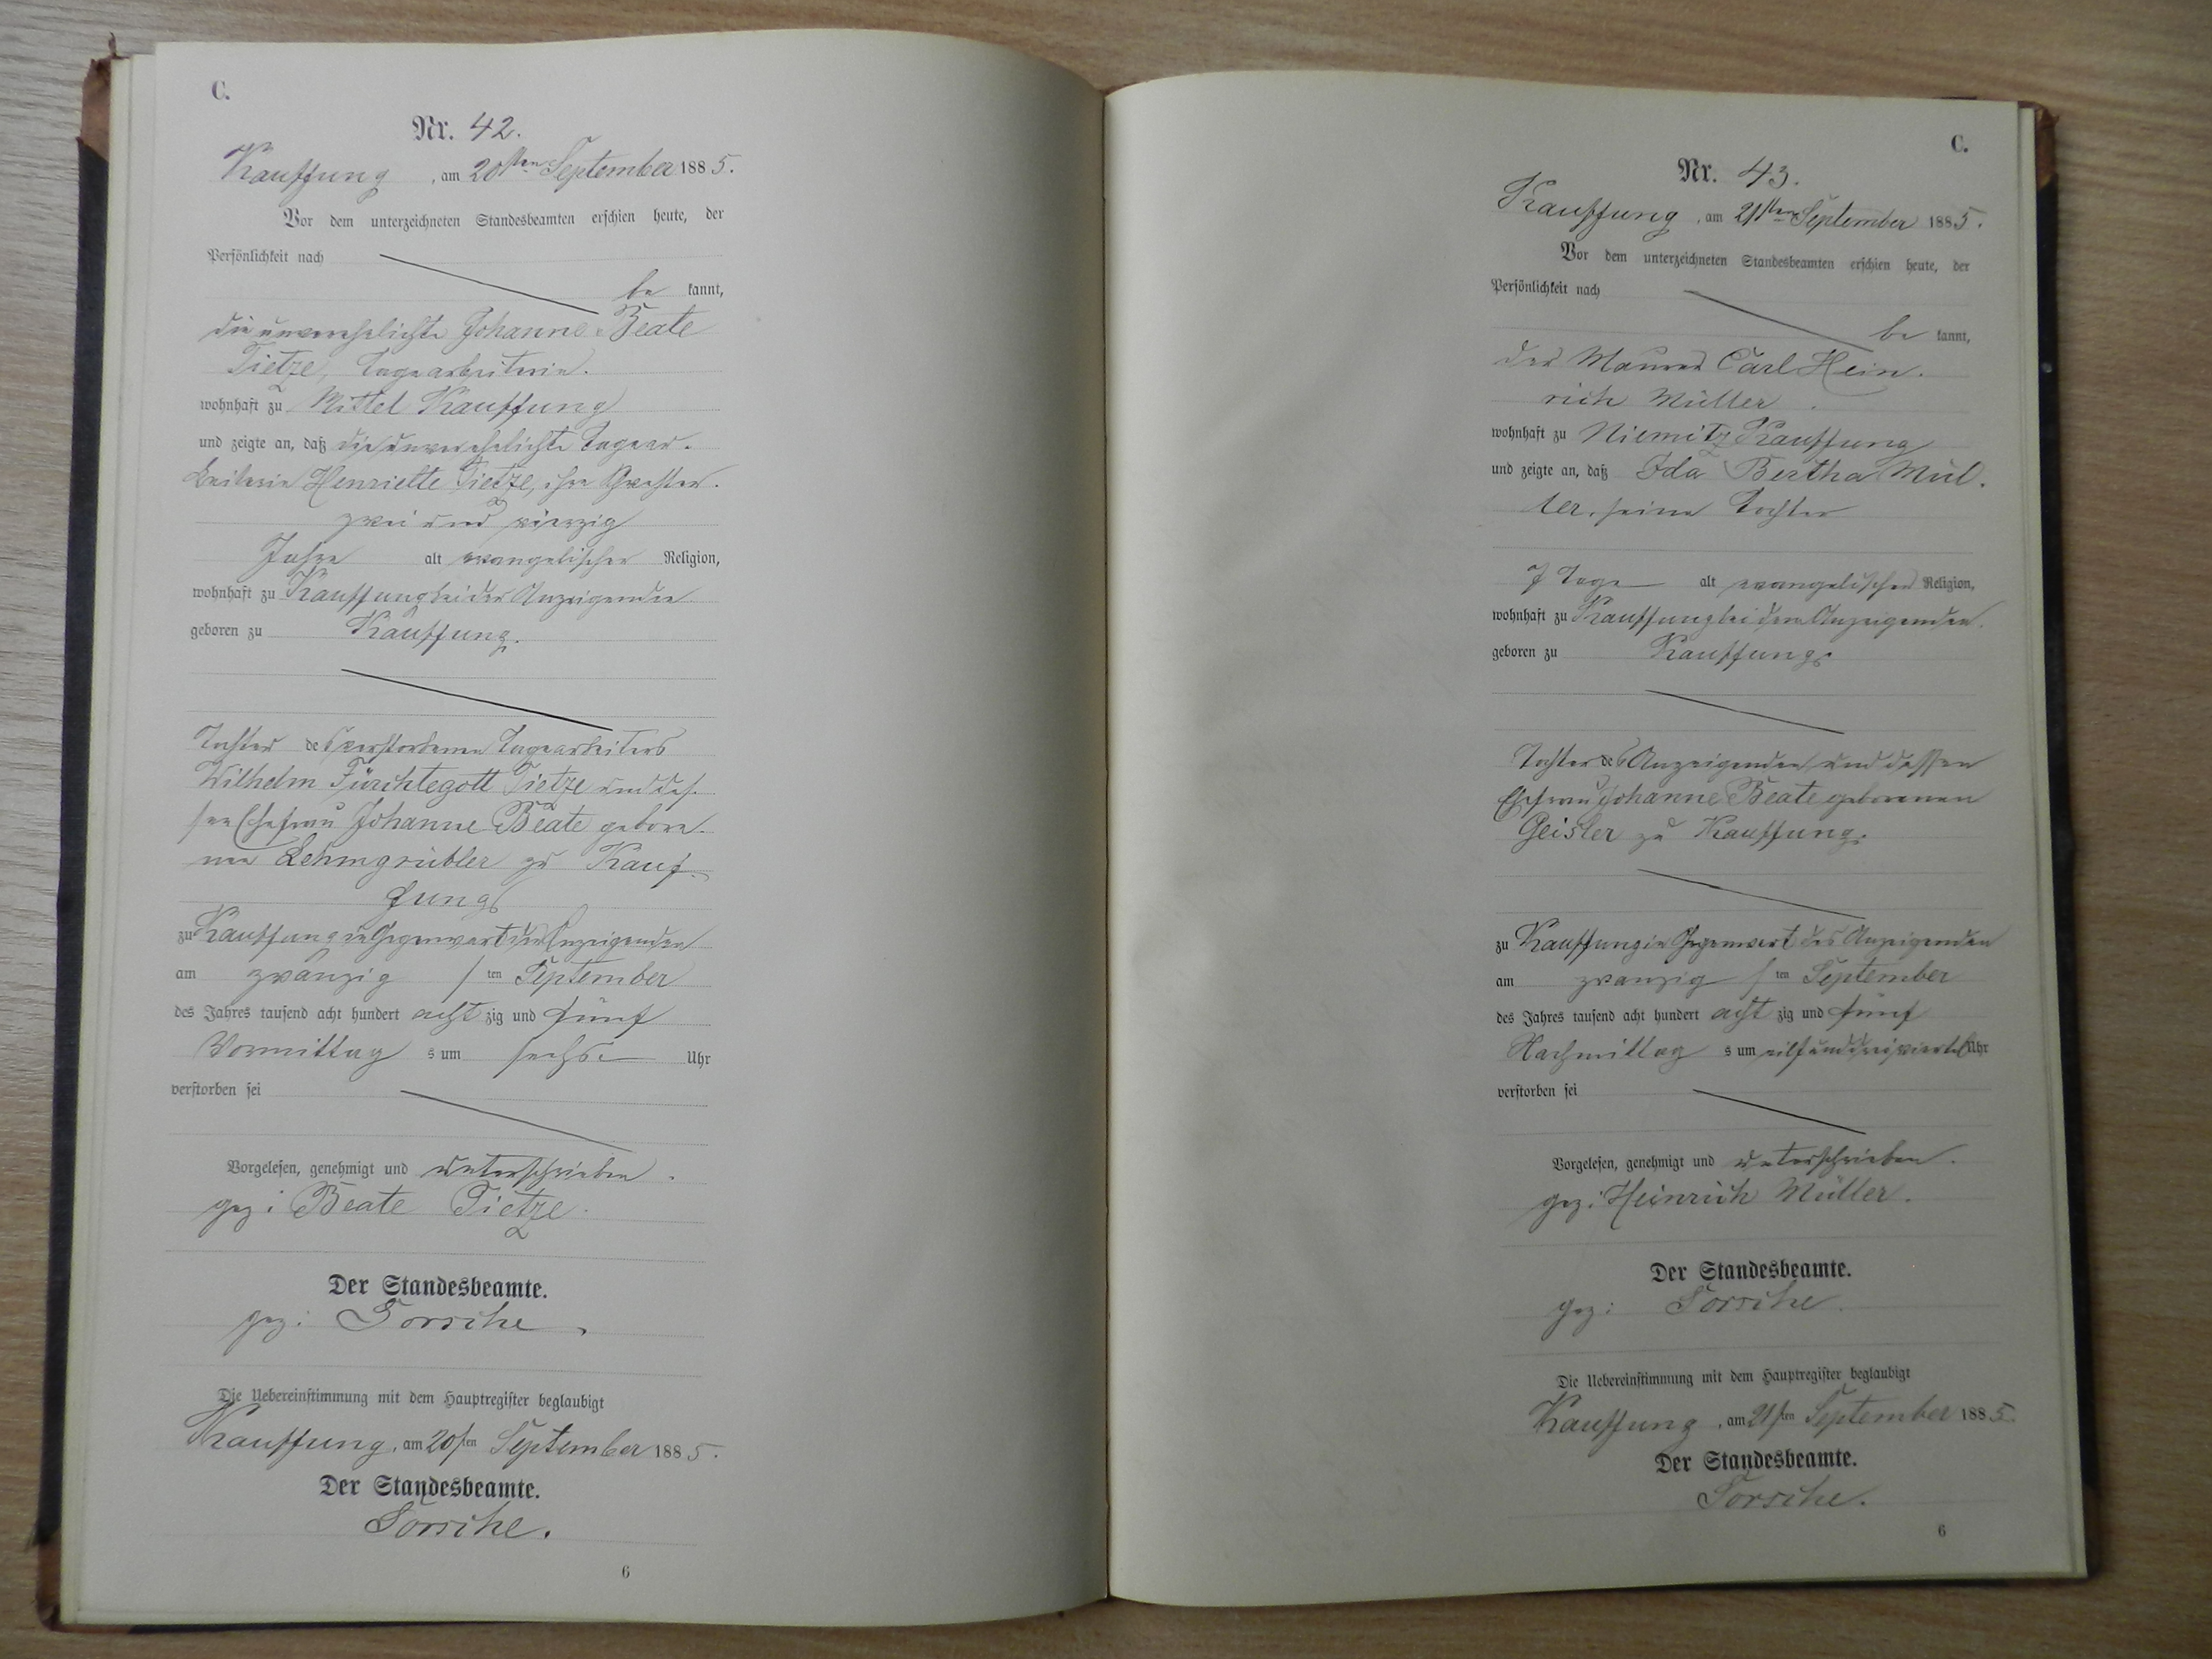 C.
Nr. 42.
Kauffung, am 20sten September 1885.
Vor dem unterzeichneten Standesbeamten erschien heute, der
Persönlichkeit nach
be kannt,
die unverehelichte Johanne Beate
Tietze, Tagearbeiterin.
wohnhaft zu Mittel Kauffung
und zeigte an, daß die unverehelichte Tagear-
beiterin Henriette Tietze, ihre Schwester.
zwei und vierzig
Jahre alt evangelischer Religion,
wohnhaft zu Kauffung bei der Anzeigenden
geboren zu Kauffung.
Tochter des verstorbenen Tagearbeiters
Wilhelm Fürchtegott Tietze und des-
sen Ehefrau Johanne Beate gebore-
nen Lehmgrübler zu Kauf-
fung
zu Kauffung in Gegenwart der Anzeigenden
am zwanzigsten September
des Jahres tausend acht hundert achtzig und fünf
Vormittags um sechs Uhr
verstorben sei
Vorgelesen, genehmigt und unterschrieben.
gez: Beate Tietze.
Der Standesbeamte.
gez:
Die Uebereinstimmung mit dem Hauptregister beglaubigt
Kauffung, am 20sten September 1885.
Der Standesbeamte.
6
C.
Nr. 43.
Kauffung, am 21sten September 1885.
Vor dem unterzeichneten Standesbeamten erschien heute, der
Persönlichkeit nach
be kannt,
der Maurer Carl Hein-
rich Müller.
wohnhaft zu Niemitz Kauffung
und zeigte an, daß Ida Bertha Mül-
ler, seine Tochter
7 Tage alt evangelischer Religion,
wohnhaft zu Kauffung bei dem Anzeigenden.
geboren zu Kauffung.
Tochter des Anzeigenden und dessen
Ehefrau Johanne Beate geborenen
Geisler zu Kauffung.
zu Kauffung in Gegenwart des Anzeigenden
am zwanzigsten September
des Jahres tausend acht hundert achtzig und fünf
Nachmittags um eilf und drei viertel Uhr
verstorben sei
Vorgelesen, genehmigt und unterschrieben.
gez: Heinrich Müller.
Der Standesbeamte.
gez:
Die Uebereinstimmung mit dem Hauptregister beglaubigt
Kauffung, am 21sten September 1885.
Der Standesbeamte.
6